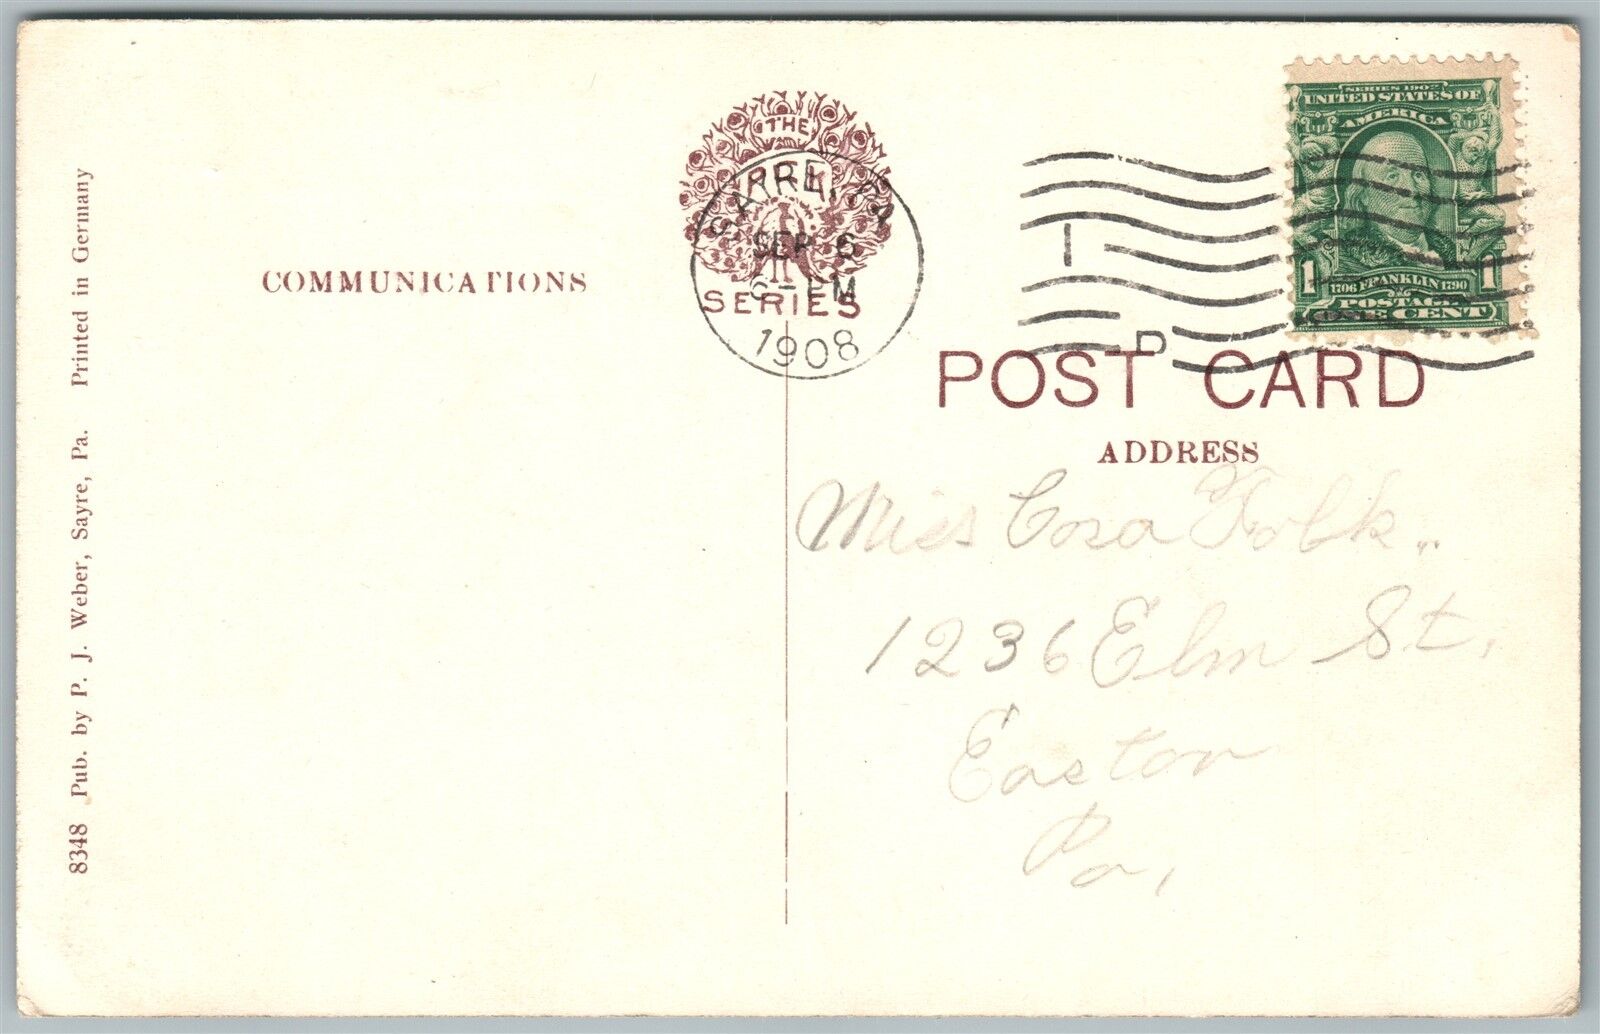 8348 Pub. by P. J. Weber, Sayre, Pa. Printed in Germany
COMMUNICATIONS
THE
SERIES
SAYRE, PA
SEP 6
6 - PM
1908
SERIES 1902
UNITED STATES OF
AMERICA
1 1
1706 FRANKLIN 1790
POSTAGE
ONE CENT
I
D
POST CARD
ADDRESS
Miss Cora Folk
1236 Elm St.
Easton
Pa,